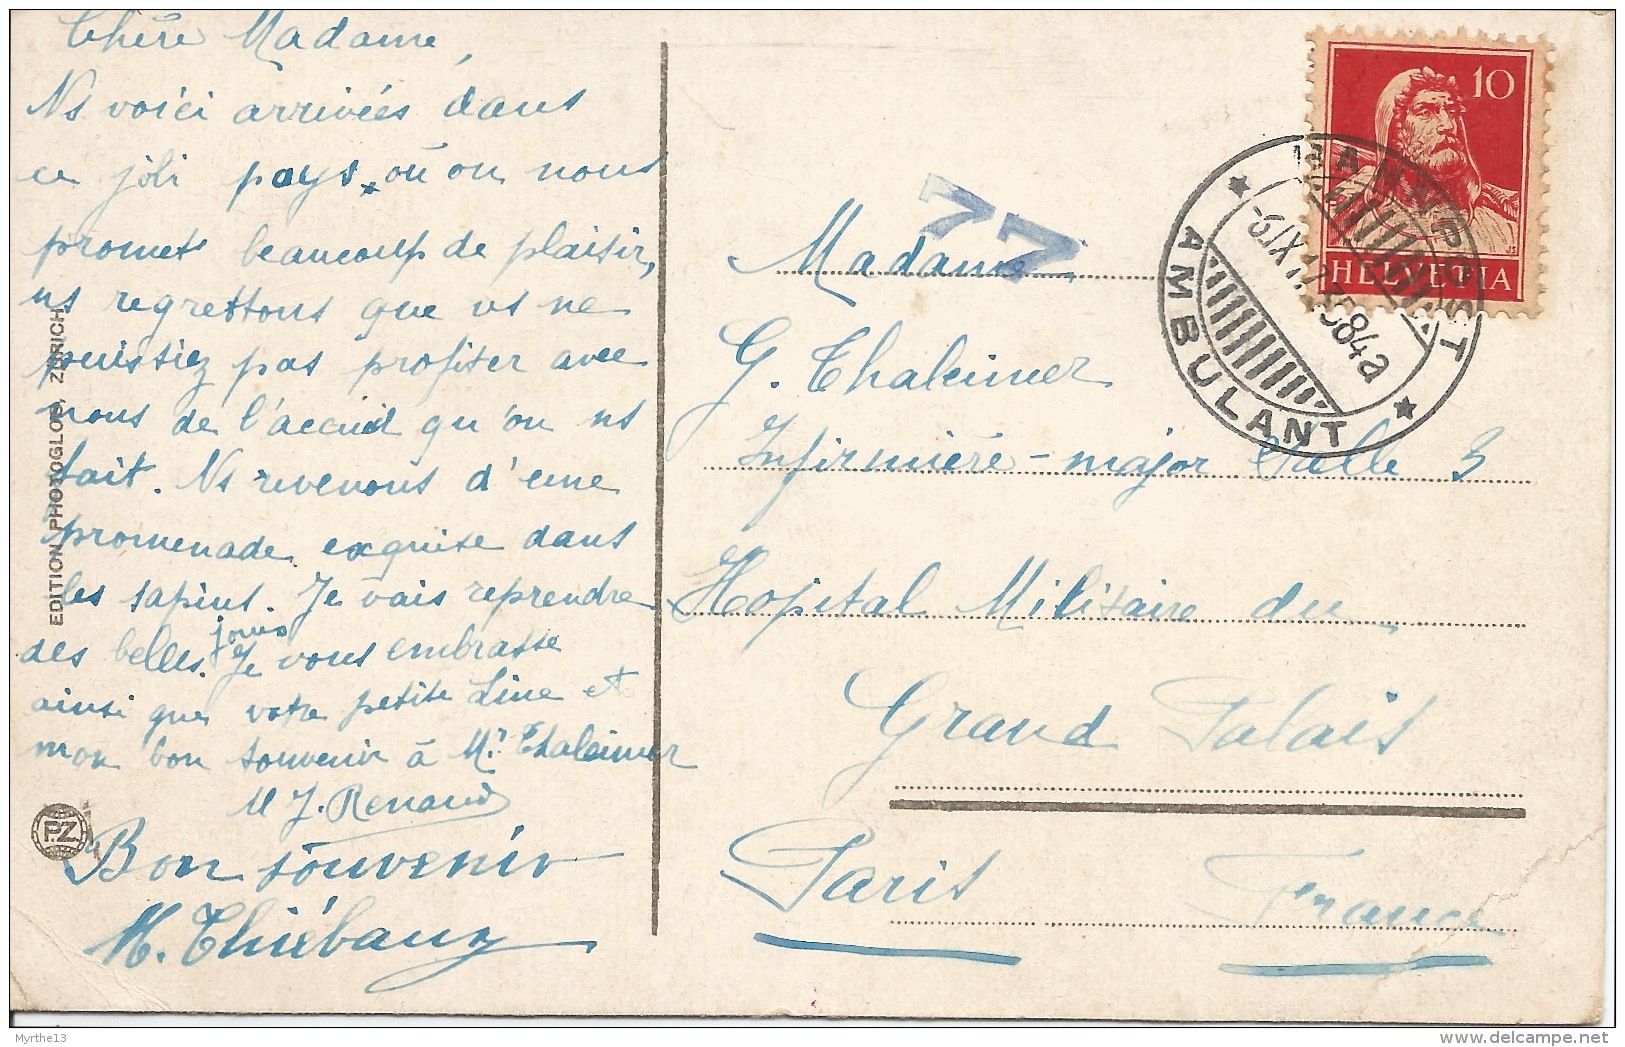 Chère Madame,
Ns voici arrivées dans
ce joli pays, où on nous
promet beaucoup de plaisir,
ns regrettons que vs ne
puissiez pas profiter avec
nous de l'accueil qu'on ns
fait. Ns revenons d'une
promenade exquise dans
les sapins. Je vais reprendre
des belles joues
Je vous embrasse
ainsi que votre petite Line et
mon bon souvenir à Mr Thaleimer
M J. Renaud
Bon souvenir
M. Thiébaux
EDITION PHOTOGLOB, ZÜRICH
P.Z
77
10
HELVETIA
BAHNPOST
AMBULANT
Madame
G. Thaleimer
Infirmière-major Salle 3
Hopital Militaire du
Grand Palais
Paris France
Myrthe13
www.delcampe.net